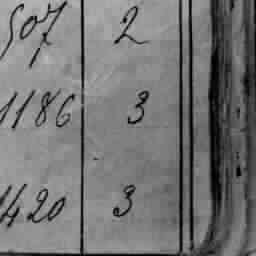 507 2
1186 3
1420 3